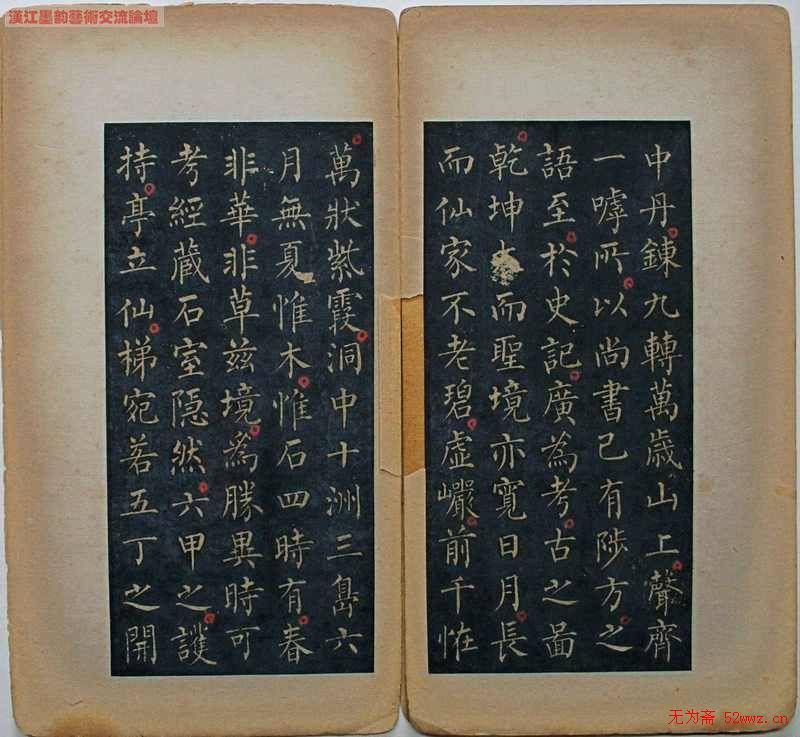 漢江墨韵藝術交流論壇
中丹鍊九轉萬歲山上聲齊
一嘑所以尚書已有陟方之
語至於史記廣為考古之啚
乾坤大而聖境亦寬日月長
而仙家不老碧虛巗前千恠
萬狀紫霞洞中十洲三島六
月無夏惟木惟石四時有春
非華非草兹境爲勝異時可
考經蔵石室隠然六甲之護
持亭立仙梯宛若五丁之開
无为斋 52wwz.cn